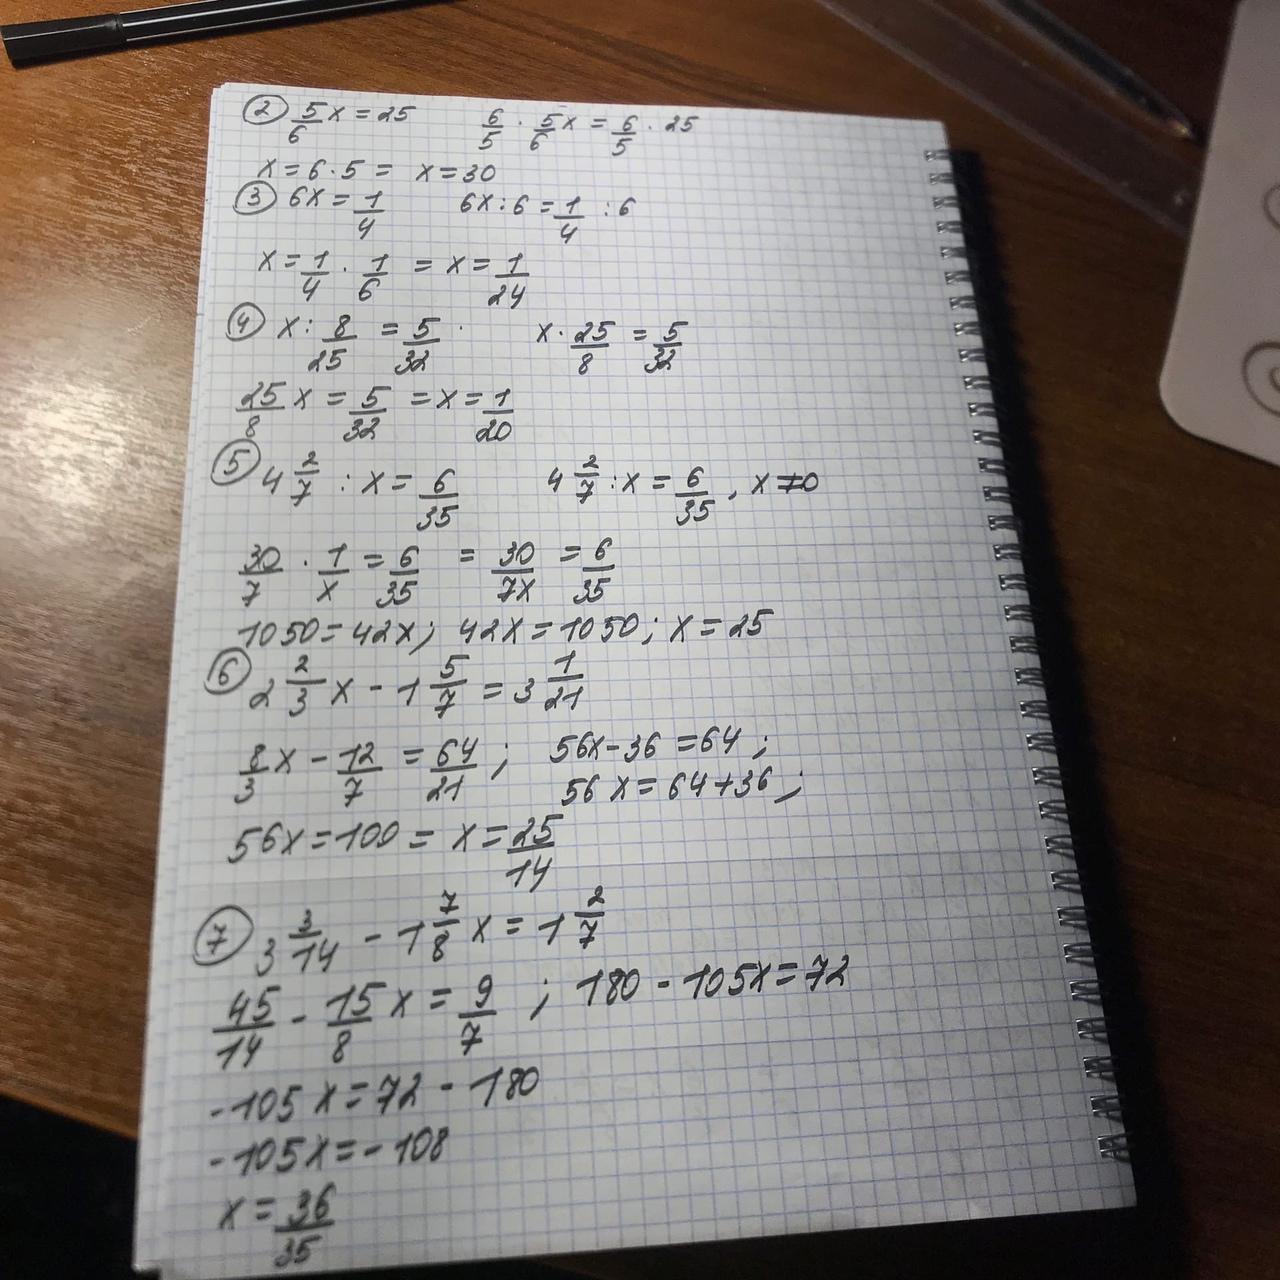 ② 5/6 x = 25   6/5 · 5/6 x = 6/5 · 25
x = 6 · 5 = x = 30
③ 6x = 1/4   6x : 6 = 1/4 : 6
x = 1/4 · 1/6 = x = 1/24
④ x : 8/25 = 5/32   x · 25/8 = 5/32
25/8 x = 5/32 = x = 1/20
⑤ 4 2/7 : x = 6/35   4 2/7 : x = 6/35 , x ≠ 0
30/7 · 1/x = 6/35 = 30/7x = 6/35
1050 = 42x; 42x = 1050; x = 25
⑥ 2 2/3 x - 1 5/7 = 3 1/21
8/3 x - 12/7 = 64/21 ; 56x - 36 = 64 ;
56x = 64 + 36 ;
56x = 100 = x = 25/14
⑦ 3 3/14 - 1 7/8 x = 1 2/7
45/14 - 15/8 x = 9/7 ; 180 - 105x = 72
-105x = 72 - 180
-105x = -108
x = 36/35